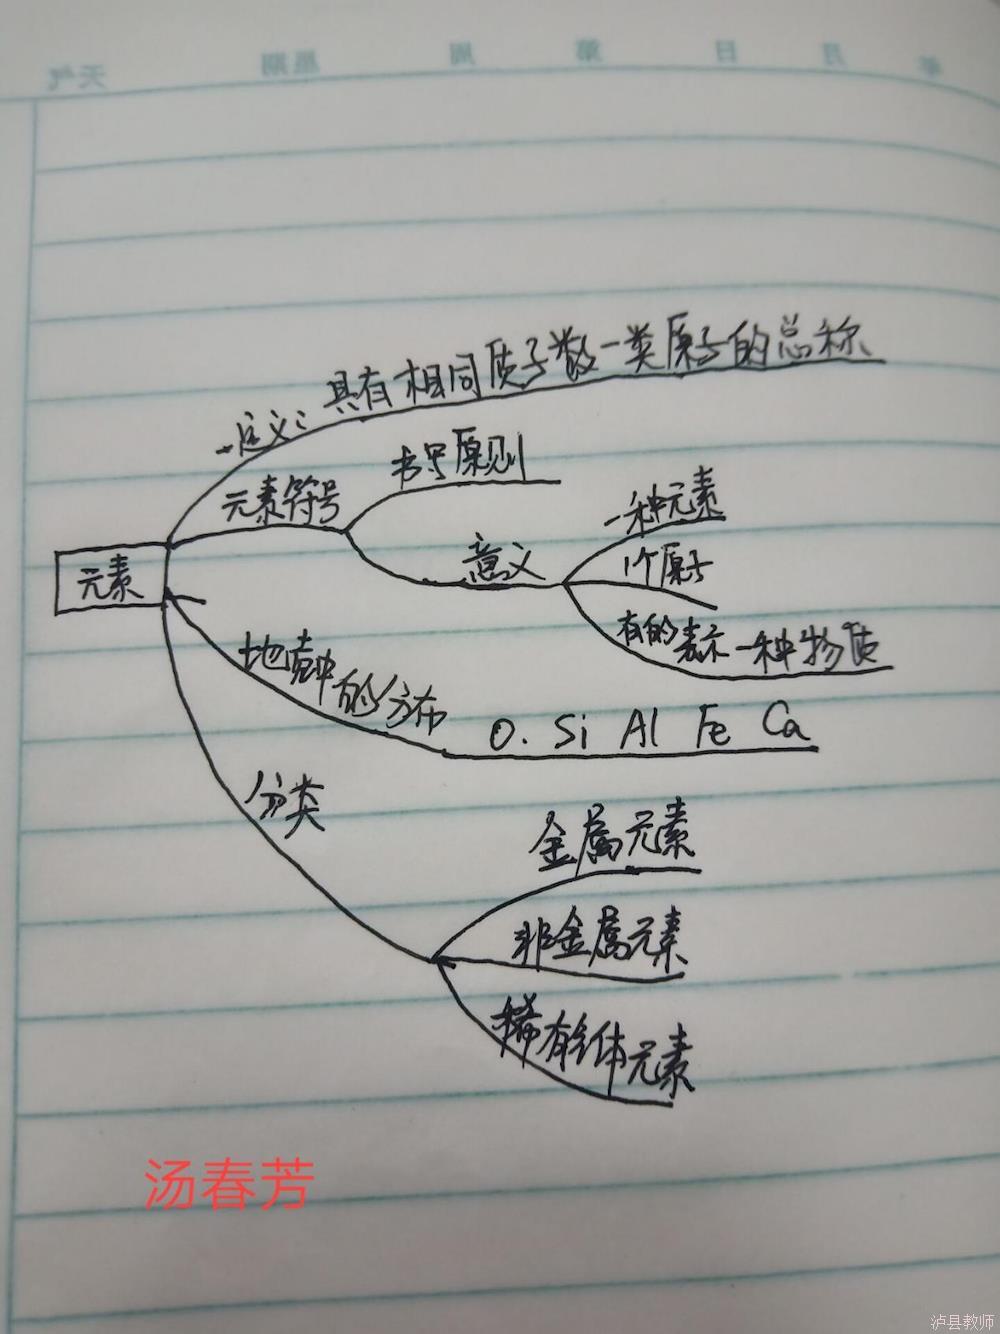 年 月 日 第 周 星期 天气
定义：具有相同质子数一类原子的总称
元素符号
书写原则
意义
一种元素
1个原子
有的表示一种物质
元素
地壳中的分布
O. Si Al Fe Ca
分类
金属元素
非金属元素
稀有气体元素
汤春芳
泸县教师